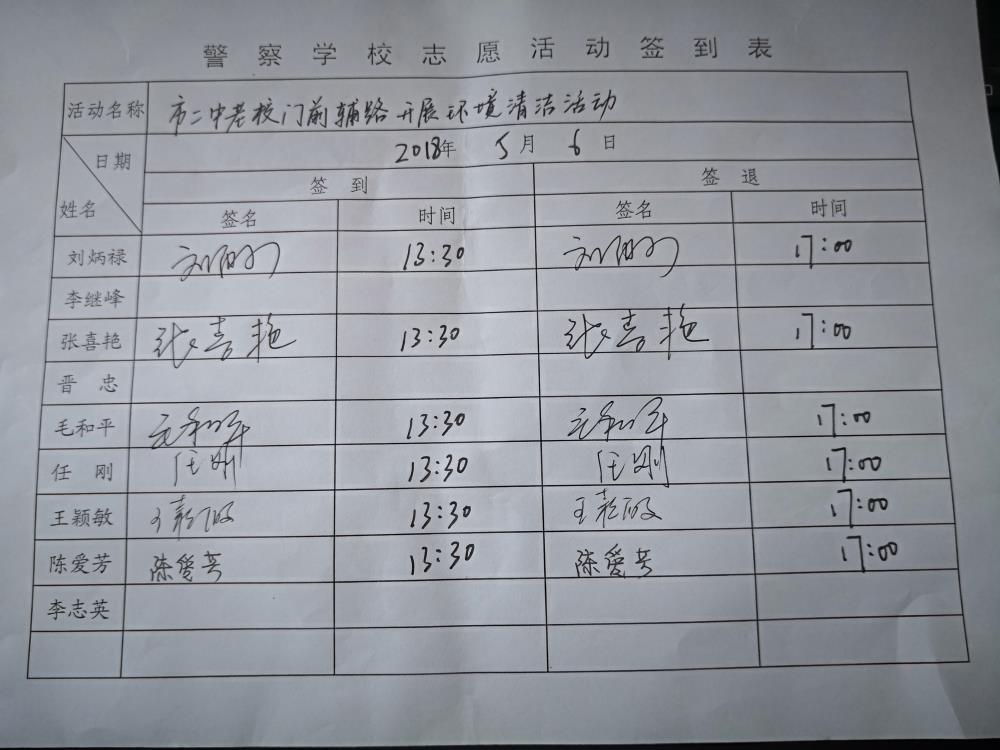 警察学校志愿活动签到表
活动名称 市二中老校门前辅路开展环境清洁活动
日期 2018年 5月 6日
姓名 签到 签退
签名 时间 签名 时间
刘炳禄 13:30 17:00
李继峰
张喜艳 张喜艳 13:30 张喜艳 17:00
晋忠
毛和平 毛和平 13:30 毛和平 17:00
任刚 任刚 13:30 任刚 17:00
王颖敏 王颖敏 13:30 王颖敏 17:00
陈爱芳 陈爱芳 13:30 陈爱芳 17:00
李志英